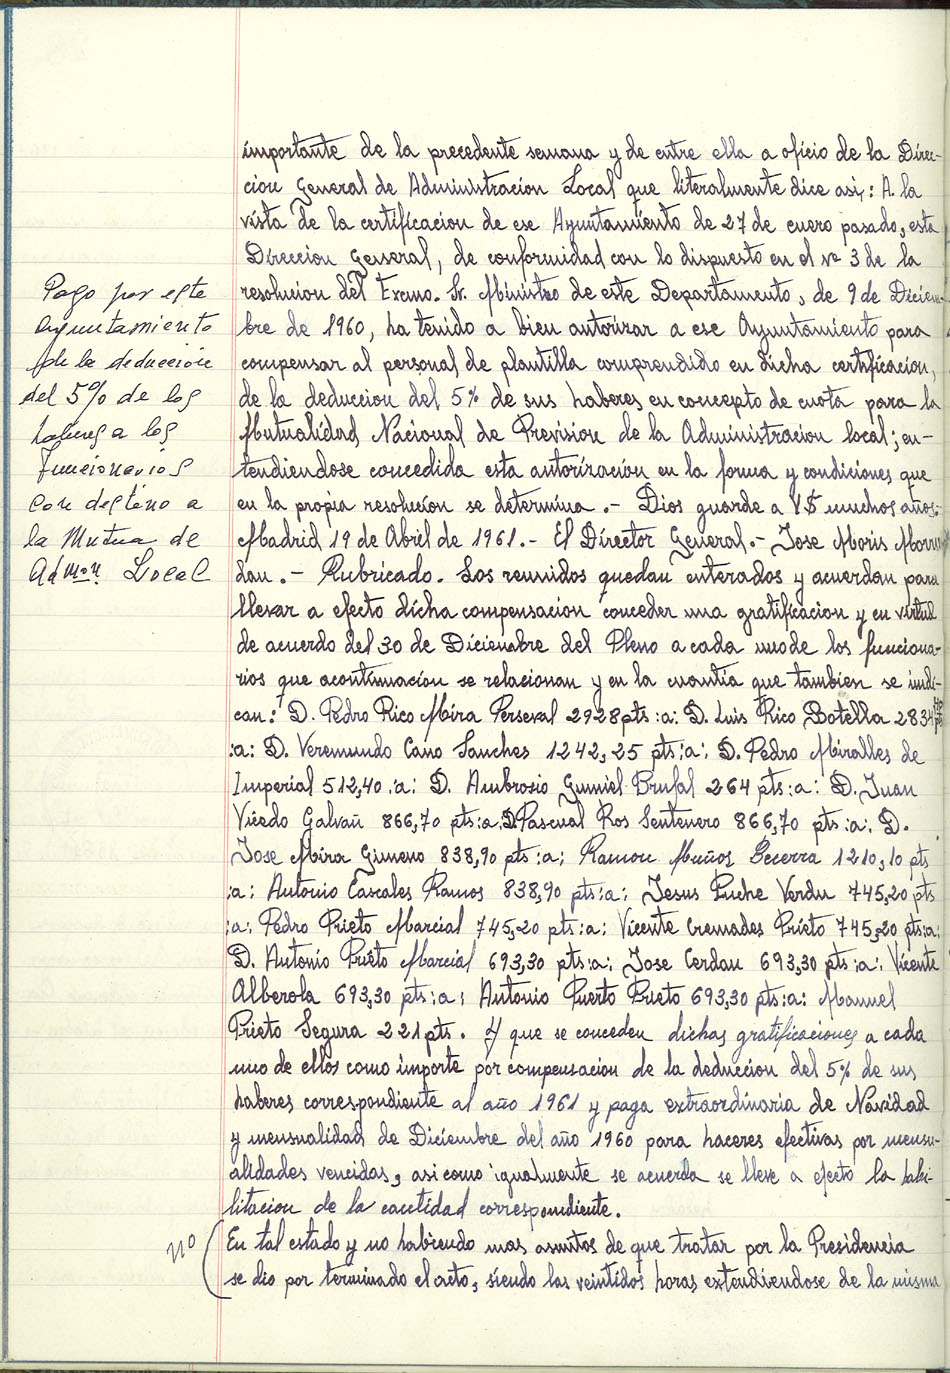 importante de la precedente semana y de entre ella a oficio de la Direc-
cion General de Administracion Local que literalmente dice asi,: A la
vista de la certificacion de ese Ayuntamiento de 27 de enero pasado, esta
Direccion General, de conformidad con lo dispuesto en el nº 3 de la
resolucion del Excmo. Sr. Ministro de este Departamento, de 9 de Diciem-
bre de 1960, ha tenido a bien autorizar a ese Ayuntamiento para
compensar al personal de plantilla comprendido en dicha certificacion,
de la deduccion del 5% de sus haberes en concepto de cuota para la
Mutualidad Nacional de Prevision de la Administracion local; en-
tendiendose concedida esta autorizacion en la forma y condiciones que
en la propia resolucion se determina.- Dios guarde a V$ muchos años.
Madrid 19 de Abril de 1961.- El Director General.- Jose Moris Morro
dan.- Rubricado. Los reunidos quedan enterados y acuerdan para
llevar a efecto dicha compensacion conceder una gratificacion y en virtud
de acuerdo del 30 de Diciembre del Pleno a cada uno de los funciona-
rios que acontinuacion se relacionan y en la cuantia que tambien se indi-
can: D. Pedro Rico Mira Perseval 2928 pts :a: D. Luis Rico Botella 2834
:a: D. Veremundo Cano Sanches 1242,25 pts :a: D. Pedro Miralles de
Imperial 512,40 :a: D. Ambrosio Gumiel Brufal 264 pts :a: D. Juan
Vicedo Galvañ 866,70 pts :a: D. Pascual Ros Sentenero 866,70 pts :a: D.
Jose Mira Gimeno 838,90 pts :a: Ramon Muños Becerra 1210,10 pts
:a: Antonio Cascales Ramos 838,90 pts :a: Jesus Puche Verdu 745,20 pts
:a: Pedro Prieto Marcial 745,20 pts :a: Vicente Cremades Prieto 745,20 pts :a:
D. Antonio Prieto Marcial 693,30 pts :a: Jose Cerdan 693,30 pts :a: Vicente
Alberola 693,30 pts :a: Antonio Puerto Prieto 693,30 pts :a: Manuel
Prieto Segura 221 pts. Y que se conceden dichas gratificaciones a cada
uno de ellos como importe por compensacion de la deduccion del 5% de sus
haberes correspondiente al año 1961 y paga extraordinaria de Navidad
y mensualidad de Diciembre del año 1960 para haceres efectivas por mensu-
alidades vencidas, asi como igualmente se acuerda se lleve a efecto la habi-
litacion de la cantidad correspondiente.
En tal estado y no habiendo mas asuntos de que tratar por la Presidencia
se dio por terminado el acto, siendo las veintidos horas extendiendose de la misma
Pago por este
Ayuntamiento
de la deduccion
del 5% de los
haberes a los
funcionarios
con destino a
la Mutua de
Admon. Local
no